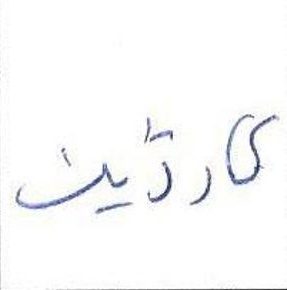 کارڈین